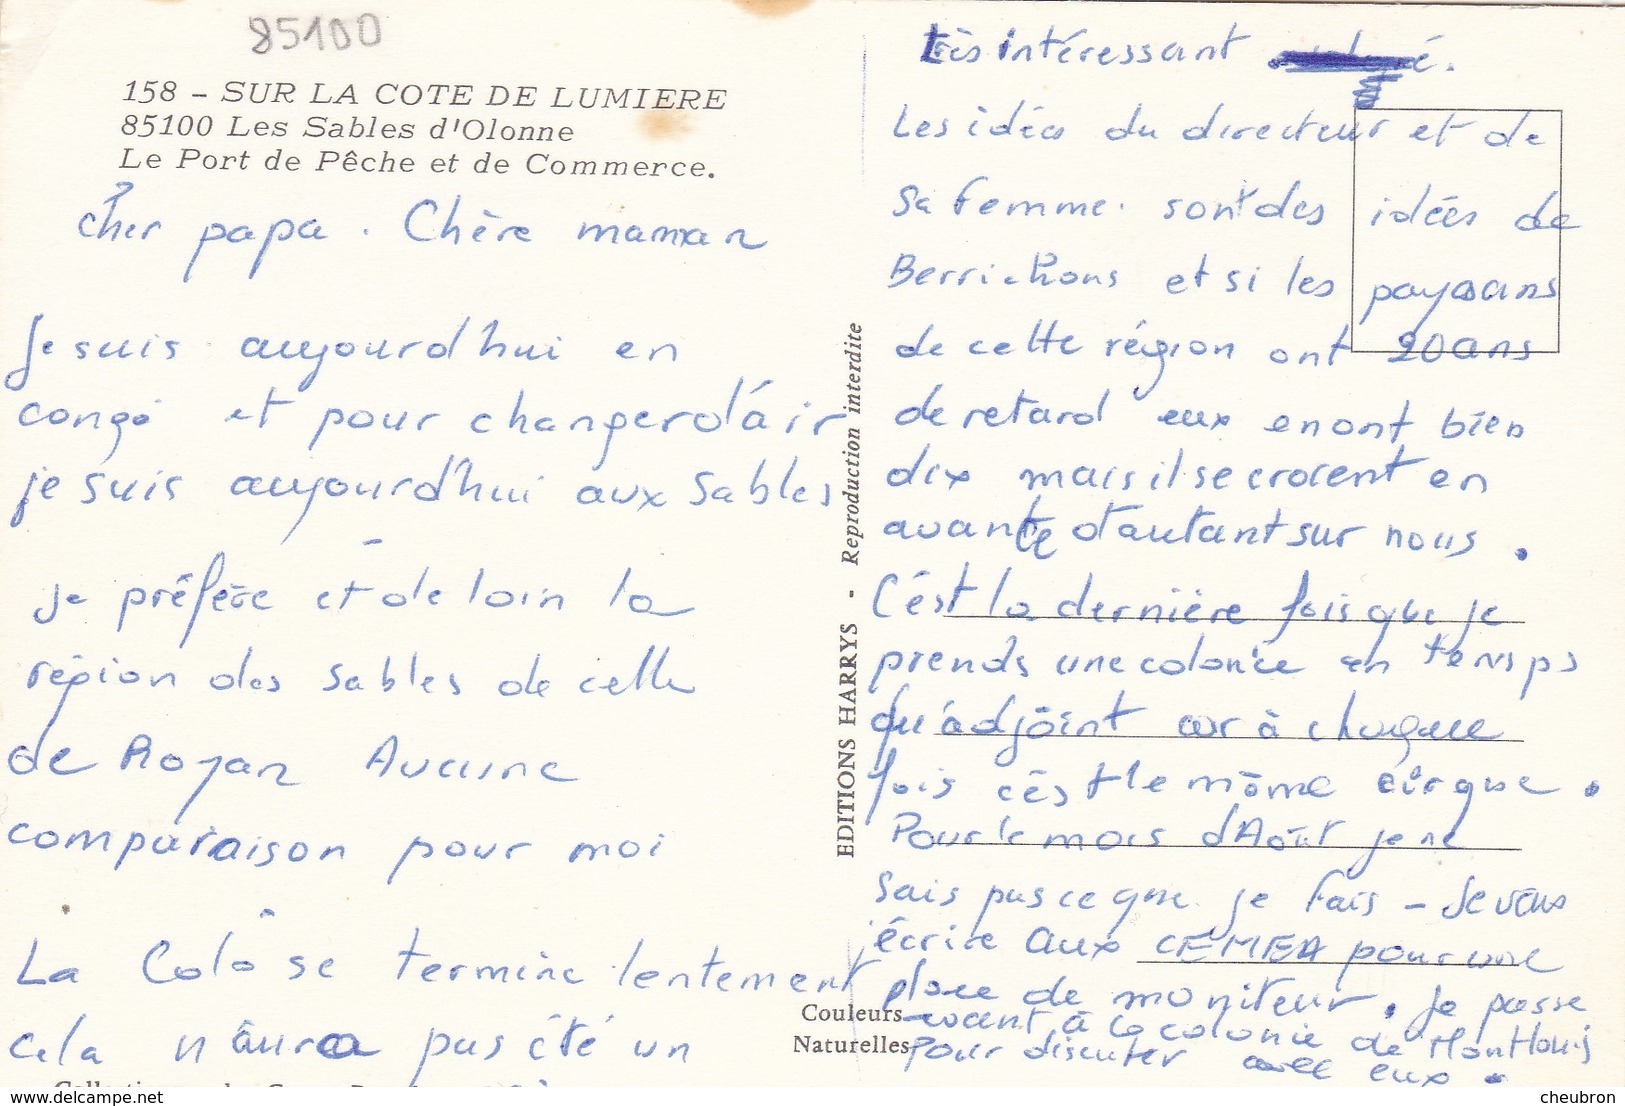 85100
158 - SUR LA COTE DE LUMIERE
85100 Les Sables d'Olonne
Le Port de Pêche et de Commerce.
Cher papa. Chère maman
Je suis aujourd'hui en
congé et pour changer d'air
je suis aujourd'hui aux Sables
je préfère et de loin la
région des Sables de celle
de Royan Aucune
comparaison pour moi
La Colo se termine lentement
cela n'aura pas été un
EDITIONS HARRYS - Reproduction interdite
Couleurs
Naturelles
très intéressant
Les idées du directeur et de
sa femme. sont des idées de
Berrichons et si les paysans
de cette région ont 20 ans
de retard eux en ont bien
dix mais il se croient en
avance d'autant sur nous.
C'est la dernière fois que je
prends une colonie en temps
qu'adjoint car à chaque
fois c'est le même cirque.
Pour le mois d'Août je ne
sais pas ce que je fais - Je vais
écrire aux CEMEA pour une
place de moniteur. Je passe
avant à la colonie de Monthouis
pour discuter avec eux.
delcampe.net
cheubron